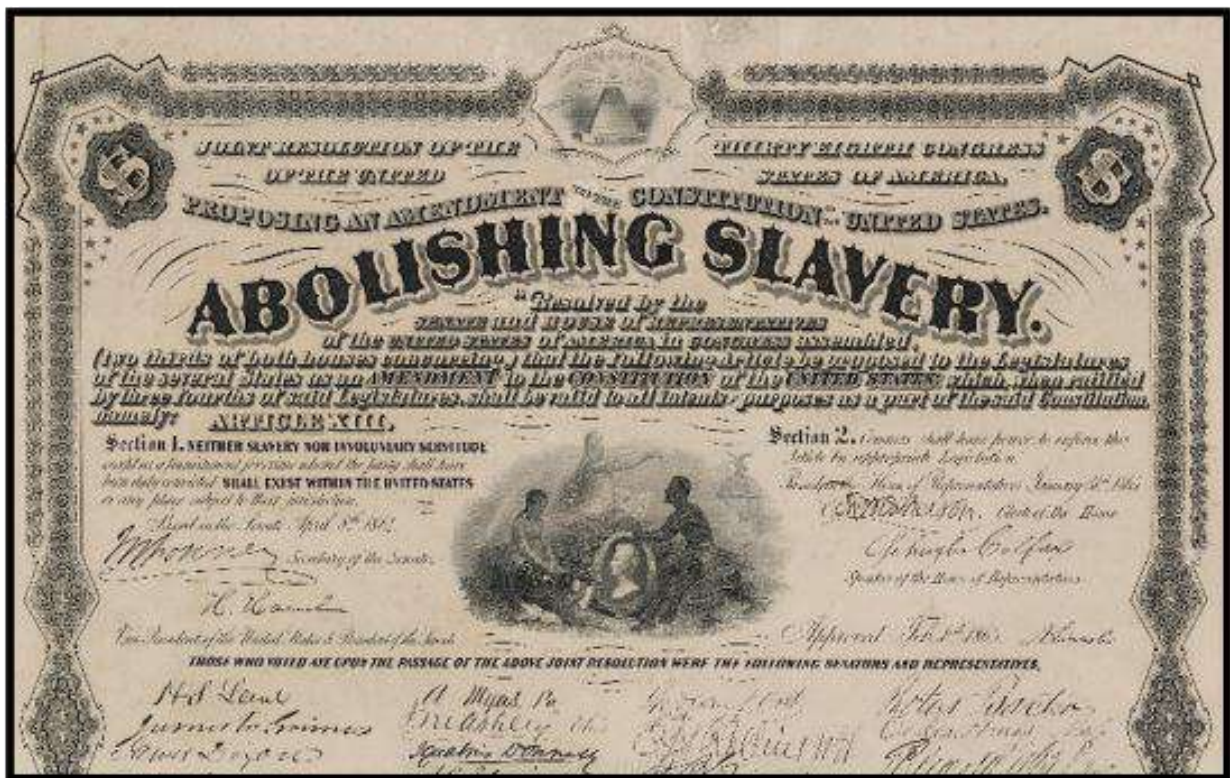 JOINT RESOLUTION OF THE THIRTY EIGHTH CONGRESS
OF THE UNITED STATES OF AMERICA,
PROPOSING AN AMENDMENT TO THE CONSTITUTION OF THE UNITED STATES.
ABOLISHING SLAVERY.
"Resolved by the
SENATE and HOUSE of REPRESENTATIVES
of the UNITED STATES of AMERICA in CONGRESS assembled,
(two thirds of both houses concurring,) that the following Article be proposed to the Legislatures
of the several States as an AMENDMENT to the CONSTITUTION of the UNITED STATES, which, when ratified
by three fourths of said Legislatures, shall be valid to all intents & purposes as a part of the said Constitution,
namely: ARTICLE XIII.
Section 1. NEITHER SLAVERY NOR INVOLUNTARY SERVITUDE
except as a punishment for crime whereof the party shall have
been duly convicted SHALL EXIST WITHIN THE UNITED STATES
or any place subject to their jurisdiction.
Passed in the Senate April 8th
Secretary of the Senate
H. Hamlin
Vice President of the United States & President of the Senate
Section 2. Congress shall have power to enforce this
Article by appropriate legislation.
House of Representatives January 31st 1865
Clerk of the House
Schuyler Colfax
Speaker of the House of Representatives
Approved Feb. 1st 1865 A Lincoln
THOSE WHO VOTED AYE UPON THE PASSAGE OF THE ABOVE JOINT RESOLUTION WERE THE FOLLOWING SENATORS AND REPRESENTATIVES.
H S Lane
A Myers Pa
James W Grimes
Ignatius Donnelly